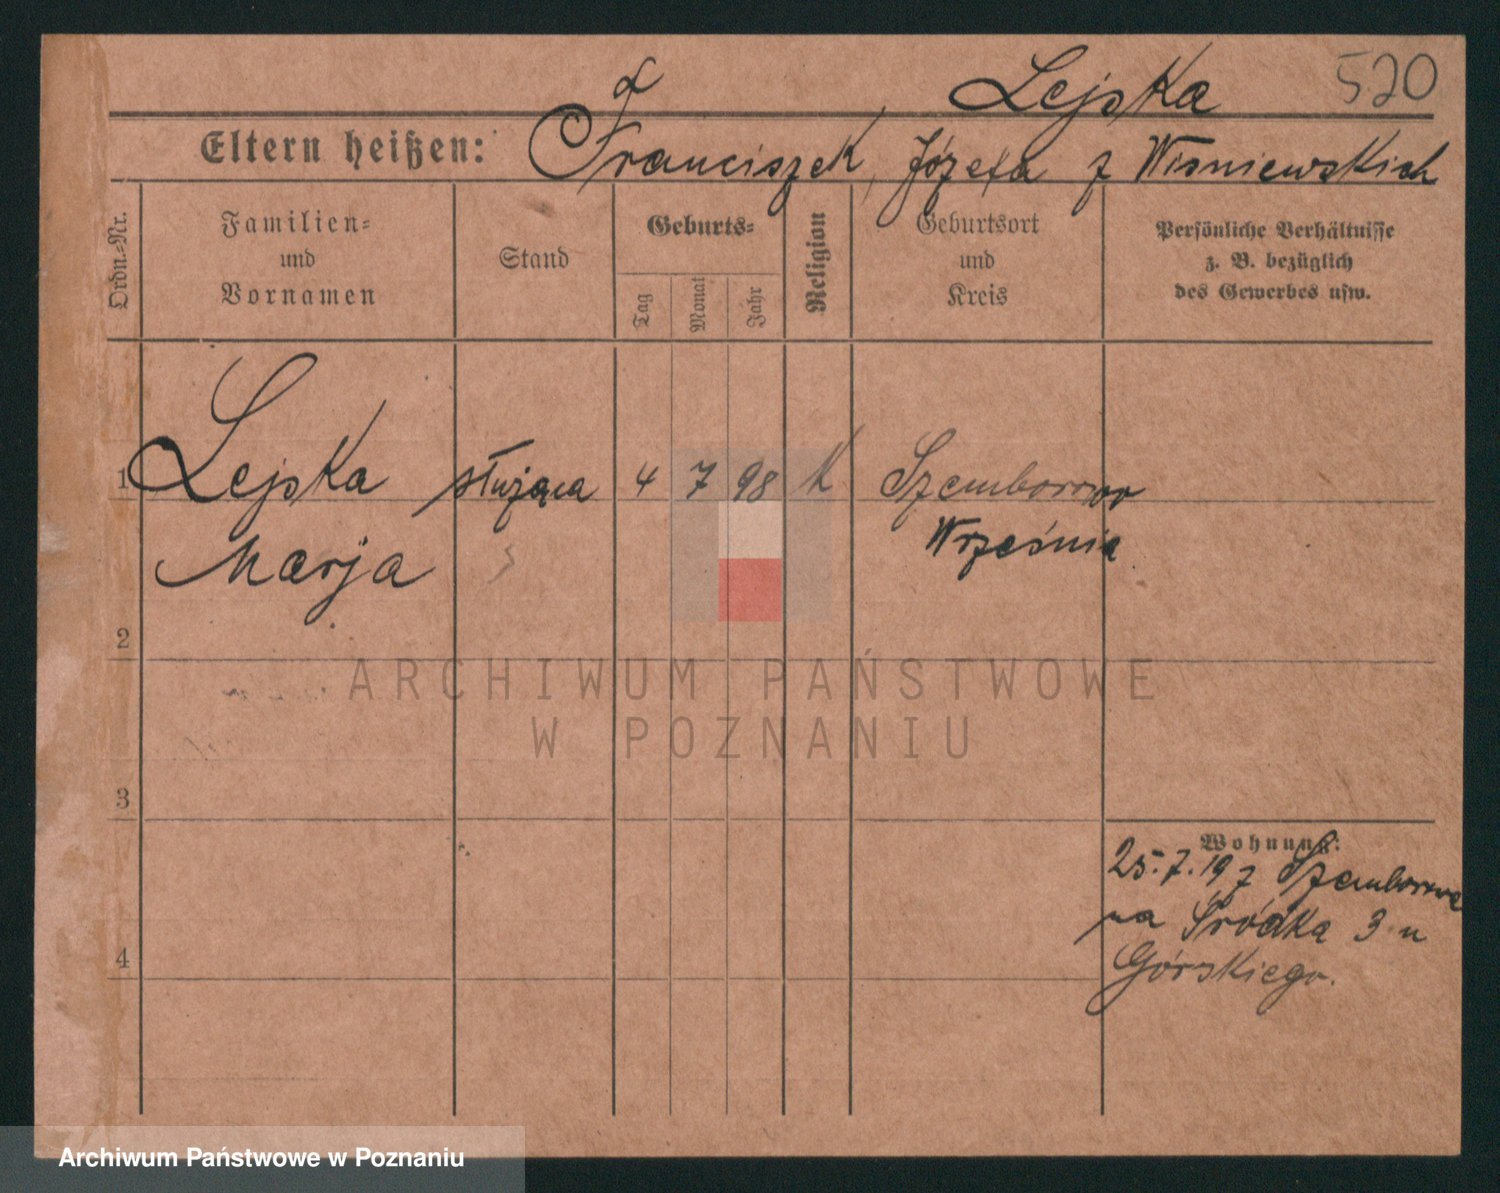 Lejska 520
Eltern heißen: Franciszek, Józefa z Wisniewskich
Ordn.-Nr.
Familien-
und
Vornamen
Stand
Geburts-
Tag
Monat
Jahr
Religion
Geburtsort
und
Kreis
Persönliche Verhältnisse
z. B. bezüglich
des Gewerbes usw.
1 Lejska służąca 4 7 98 K Szemborowo
Marja Września
2
3
4
Wohnung:
25.7.19 z Szemborowa
na Śródka 3 u
Górskiego.
ARCHIWUM PAŃSTWOWE
W POZNANIU
Archiwum Państwowe w Poznaniu